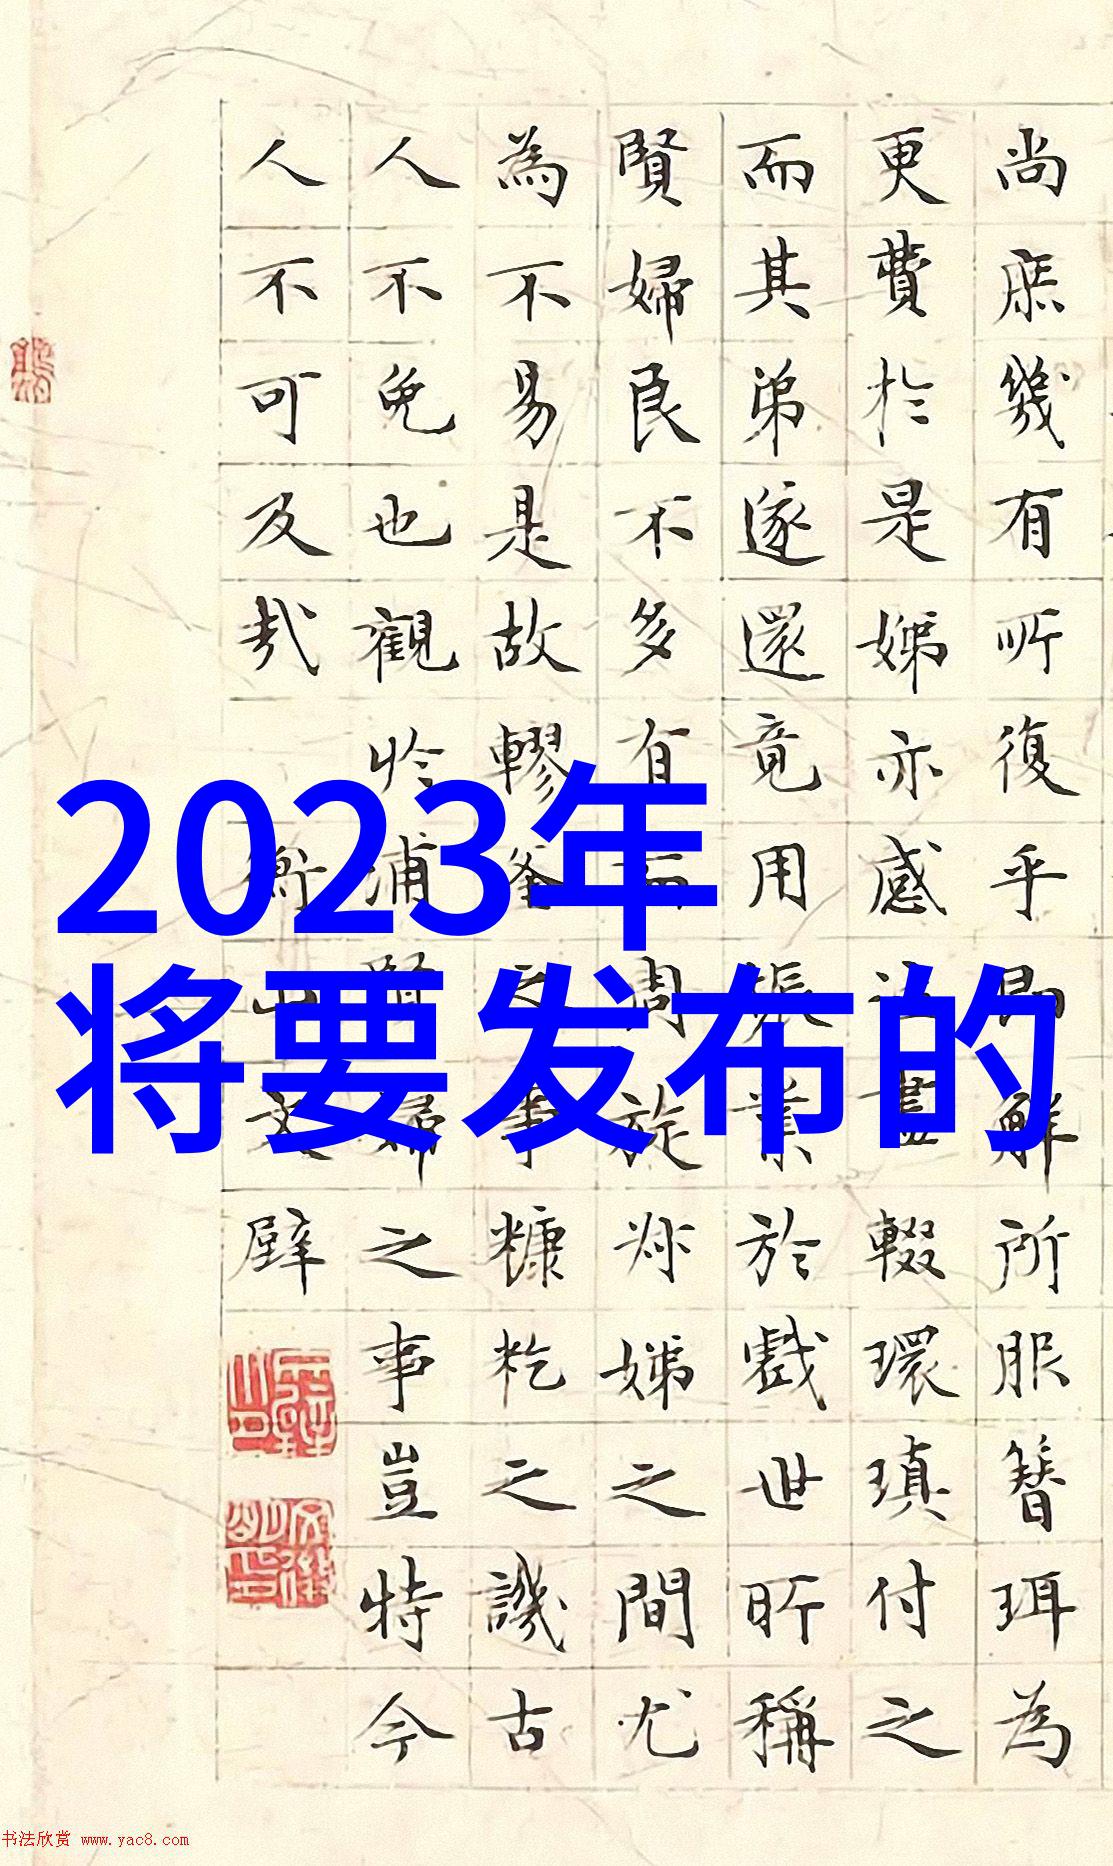 2023年
将要发布的
尚庶幾有所復乎即解所服簪珥為
更費於是娣亦感盡輟環瑱付之
而其弟遂還竟用振業於戲世所稱
賢婦良不多有周旋娣之間尤
為不易是故釜之事糠籺之譏古
人不免也觀於浦婦之事豈特今
人不可及哉
衡山文壁
书法欣赏 www.yac8.com